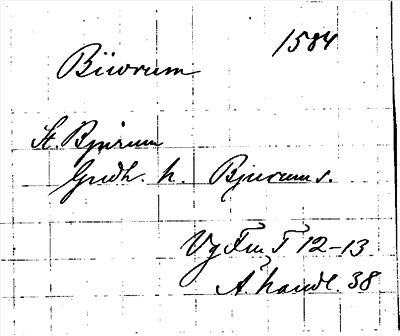 1584
Biwrum
St. Bjurum
Gudh. h. Bjurum s.
Vg Fm T 12-13
A. handl. 38